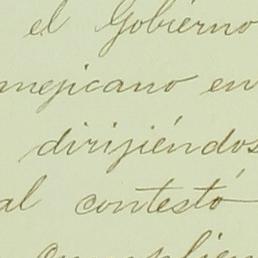 el Gobierno
mejicano en
dirijiéndos
al contestó